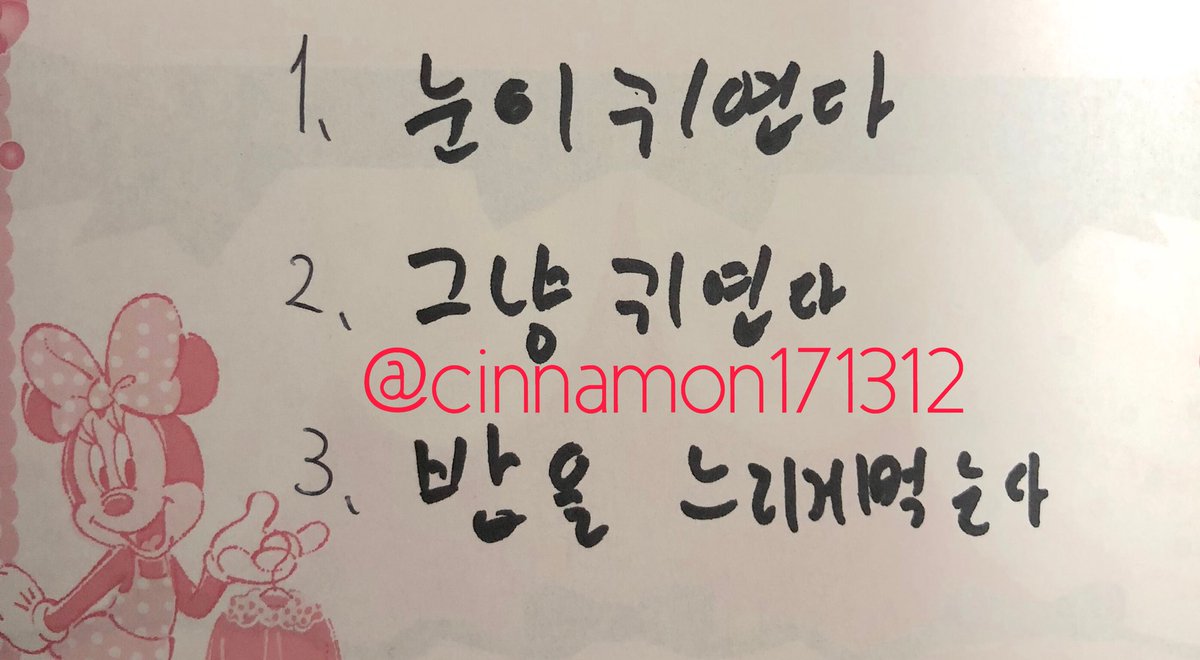 1. 눈이 귀연다
2. 그냥 귀연다
@cinnamon171312
3. 밥을 느리게먹는다